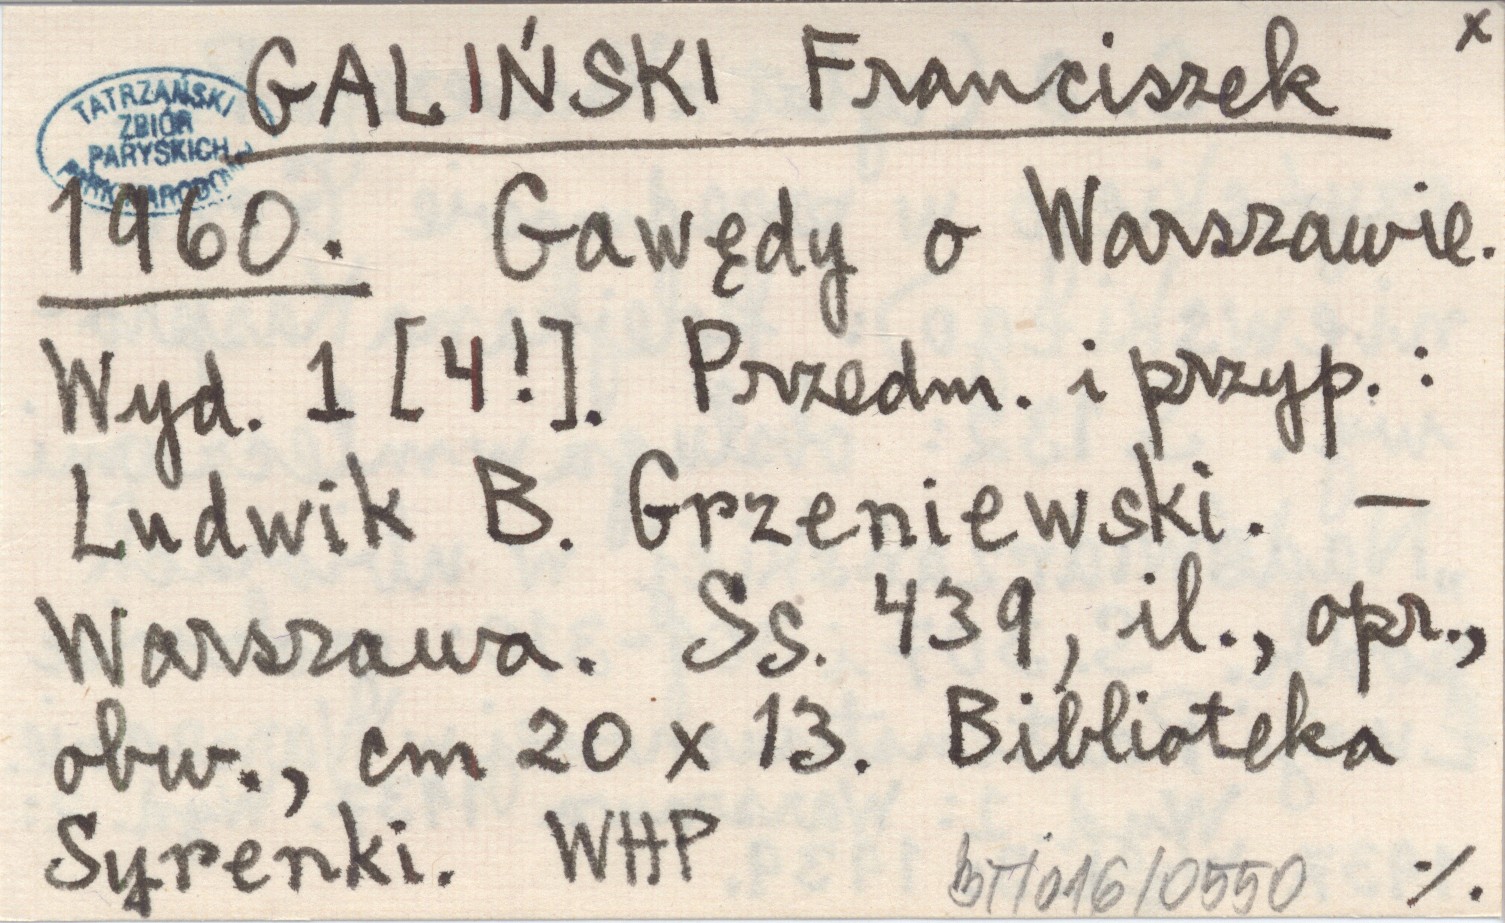 x
GALIŃSKI Franciszek
TATRZAŃSKI
ZBIÓR
PARYSKICH
1960. Gawędy o Warszawie.
Wyd. 1 [4!]. Przedm. i przyp. :
Ludwik B. Grzeniewski. —
Warszawa. Ss. 439, il., opr.,
obw., cm 20 x 13. Biblioteka
Syrenki. WHP
BT/016/0550 ·/.